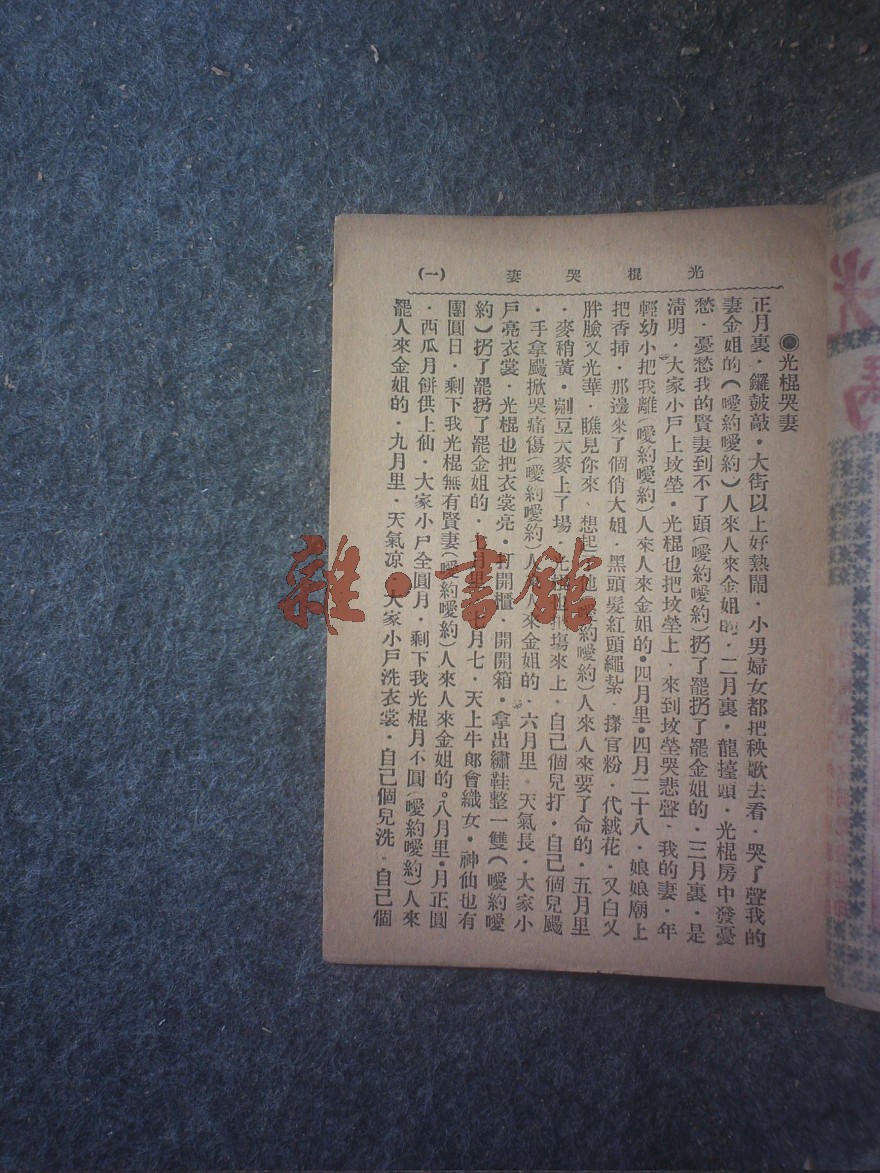 光棍哭妻 (一)
●光棍哭妻
正月裏．鑼皷敲．大街以上好熱閙．小男婦女都把秧歌去看．哭了聲我的
妻金姐的(噯約噯約)人來人來金姐的．二月裏．龍擡頭．光棍房中發憂
愁．憂愁我的賢妻到不了頭(噯約噯約)扔了罷扔了罷金姐的．三月裏．是
淸明．大家小戶上坟塋．光棍也把坟塋上．來到坟塋哭悲聲．我的妻．年
輕幼小把我離(噯約噯約)人來人來金姐的．四月里．四月二十八．娘娘廟上
把香挿．那邊來了個俏大姐．黑頭髮紅頭繩紮．搽官粉．代絨花．又白又
胖臉又光華．瞧見你來．想起他約噯約)人來人來要了命的．五月里
．麥稍黃．剮豆大麥上了場．光棍也把塲來上．自己個兒打．自己個兒颺
．手拿颺掀哭痛傷(噯約噯約)人來人來金姐的．六月里．天氣長．大家小
戶亮衣裳．光棍也把衣裳亮．打開櫃．開開箱．拿出繡鞋整一雙(噯約噯
約)扔了罷扔了罷金姐的．七月里．七月七．天上牛郎會織女．神仙也有
團圓日．剩下我光棍無有賢妻(噯約噯約)人來人來金姐的。八月里．月正圓
．西瓜月餅供上仙．大家小戶全圓月．剩下我光棍月不圓(噯約噯約)人來
罷人來金姐的．九月里．天氣凉．大家小戶洗衣裳．自己個兒洗．自己個
雜·書館
光
馬